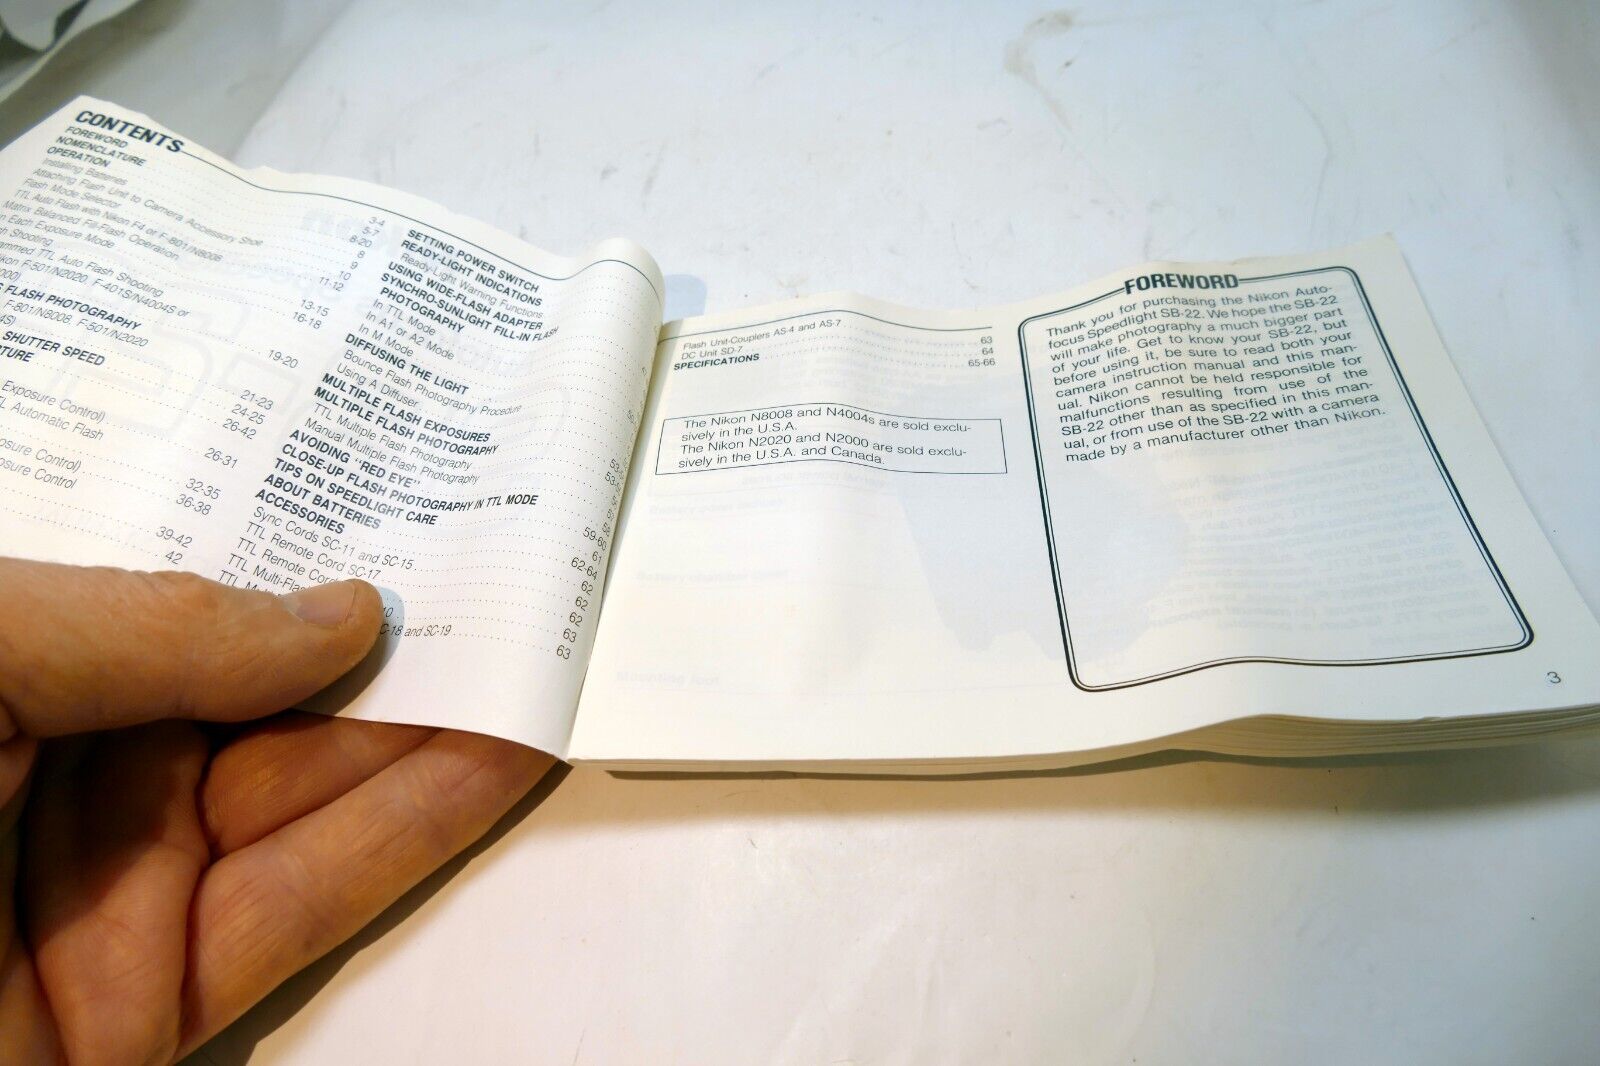 CONTENTS
FOREWORD
NOMENCLATURE 3-4
OPERATION 5-7
Installing Batteries 8-20
Attaching Flash Unit to Camera Accessory Shoe 8
Flash Mode Selector 9
TTL Auto Flash with Nikon F4 or F-801/N8008 10
Matrix Balanced Fill-Flash Operation 11-12
Each Exposure Mode
Shooting 13-15
TTL Auto Flash Shooting 16-18
F-501/N2020, F-401S/N4004S or
19-20
FLASH PHOTOGRAPHY
F-801/N8008, F-501/N2020
SHUTTER SPEED 21-23
24-25
Exposure Control) 26-42
Automatic Flash
26-31
Exposure Control)
Exposure Control 32-35
36-38
39-42
42
SETTING POWER SWITCH
READY-LIGHT INDICATIONS
Ready-Light Warning Functions
USING WIDE-FLASH ADAPTER
SYNCHRO-SUNLIGHT FILL-IN FLASH
PHOTOGRAPHY
In TTL Mode
In A1 or A2 Mode
In M Mode
DIFFUSING THE LIGHT
Bounce Flash Photography Procedure
Using A Diffuser
MULTIPLE FLASH EXPOSURES
MULTIPLE FLASH PHOTOGRAPHY
TTL Multiple Flash Photography
Manual Multiple Flash Photography
AVOIDING "RED EYE"
CLOSE-UP FLASH PHOTOGRAPHY IN TTL MODE
TIPS ON SPEEDLIGHT CARE 59-60
ABOUT BATTERIES 61
ACCESSORIES 62-64
Sync Cords SC-11 and SC-15 62
TTL Remote Cord SC-17 62
TTL Remote Cord 62
TTL Multi-Flash 63
TTL SC-18 and SC-19 63
Flash Unit-Couplers AS-4 and AS-7 63
DC Unit SD-7 64
SPECIFICATIONS 65-66
The Nikon N8008 and N4004s are sold exclu-
sively in the U.S.A.
The Nikon N2020 and N2000 are sold exclu-
sively in the U.S.A. and Canada.
FOREWORD
Thank you for purchasing the Nikon Auto-
focus Speedlight SB-22. We hope the SB-22
will make photography a much bigger part
of your life. Get to know your SB-22, but
before using it, be sure to read both your
camera instruction manual and this man-
ual. Nikon cannot be held responsible for
malfunctions resulting from use of the
SB-22 other than as specified in this man-
ual, or from use of the SB-22 with a camera
made by a manufacturer other than Nikon.
3